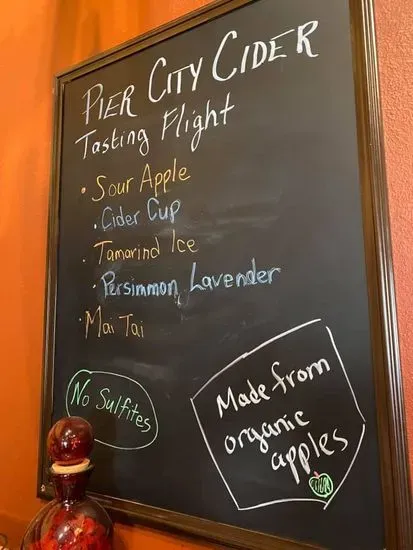 PIER CITY CIDER
Tasting Flight
• Sour Apple
• Cider Cup
• Tamarind Ice
• Persimmon Lavender
• Mai Tai
No Sulfites
Made from
organic
apples